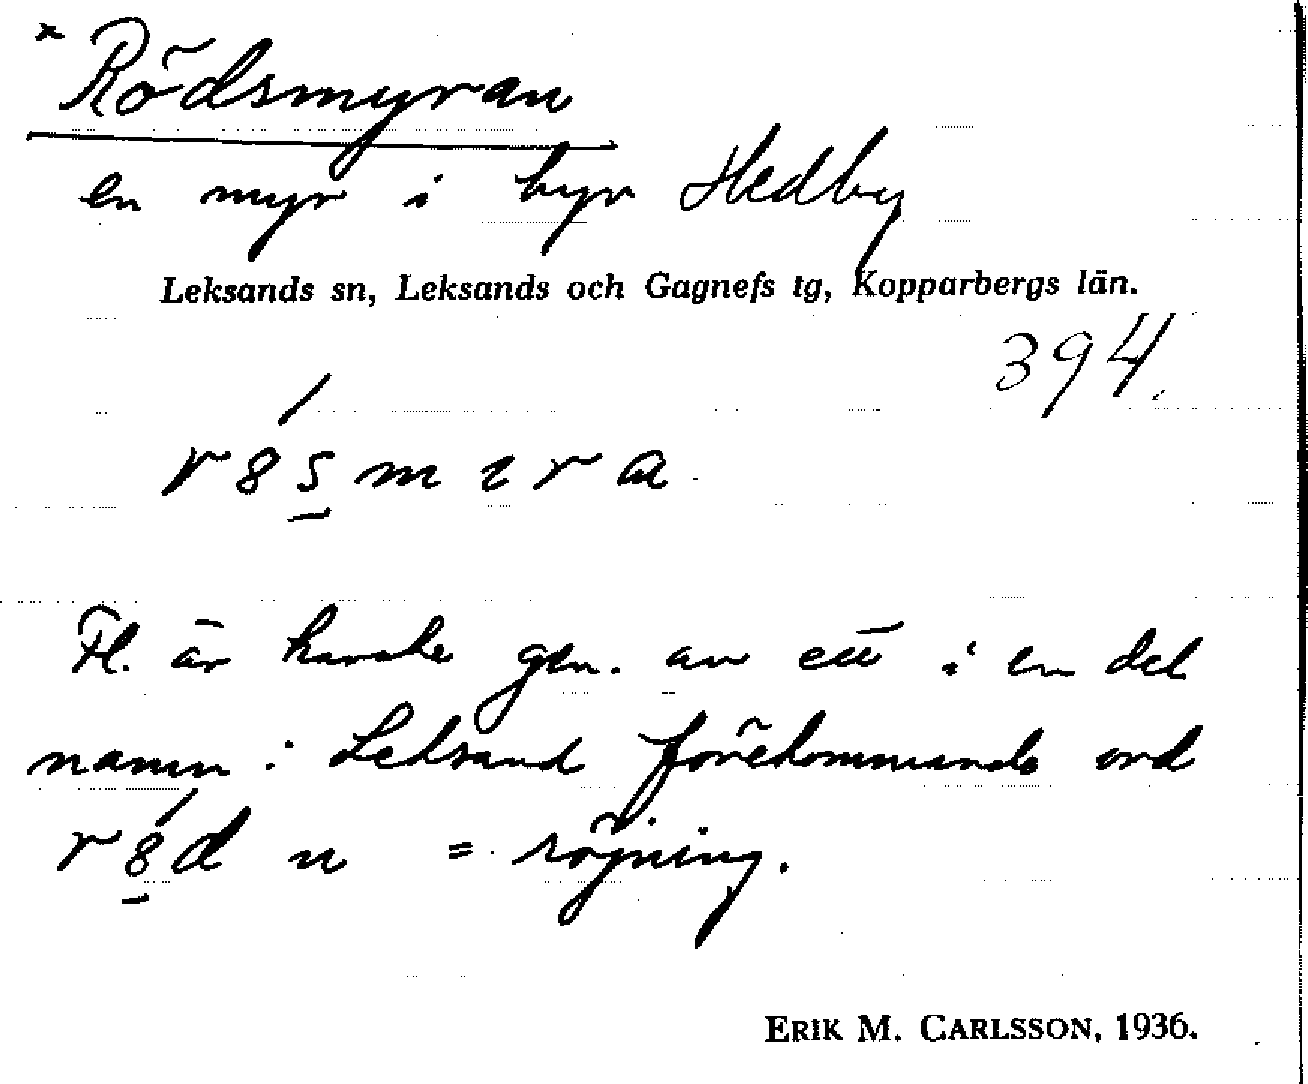 * Rödsmyran
en myr i byn Hedby
Leksands sn, Leksands och Gagnefs tg, Kopparbergs län.
394.
r8smɩra.
Fl. är kanske gen. av ett i en del
namn i Leksand förekommande ord
r8d n = röjning.
ERIK M. CARLSSON, 1936.